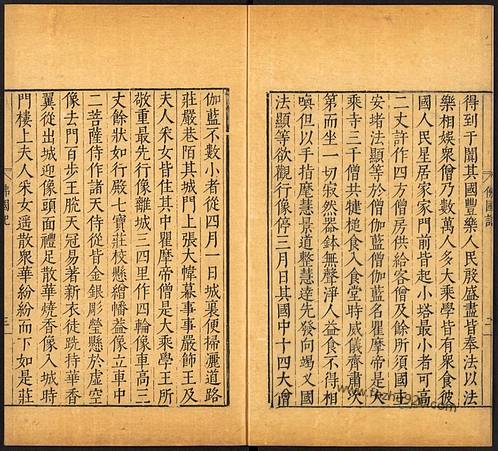 得到于闐其國豐樂人民殷盛盡皆奉法以法
樂相娛衆僧乃數萬人多大乘學皆有衆食彼
國人民星居家家門前皆起小塔最小者可高
二丈許作四方僧房供給客僧及餘所須國主
安堵法顯等於僧伽藍僧伽藍名瞿摩帝是大
乘寺三千僧共犍槌食入食堂時威儀齊肅次
第而坐一切寂然器鉢無聲淨人益食不得相
喚但以手指麾慧景道整慧達先發向竭叉國
法顯等欲觀行像停三月日其國中十四大僧
伽藍不數小者從四月一日城裏便掃灑道路
莊嚴巷陌其城門上張大幃幕事事嚴飾王及
夫人采女皆住其中瞿摩帝僧是大乘學王所
敬重最先行像離城三四里作四輪像車高三
丈餘狀如行殿七寶莊校懸繒幡蓋像立車中
二菩薩侍作諸天侍從皆金銀彫瑩懸於虛空
像去門百步王脫天冠易著新衣徒跣持華香
翼從出城迎像頭面禮足散華燒香像入城時
門樓上夫人采女遥散衆華紛紛而下如是莊
佛國記
三